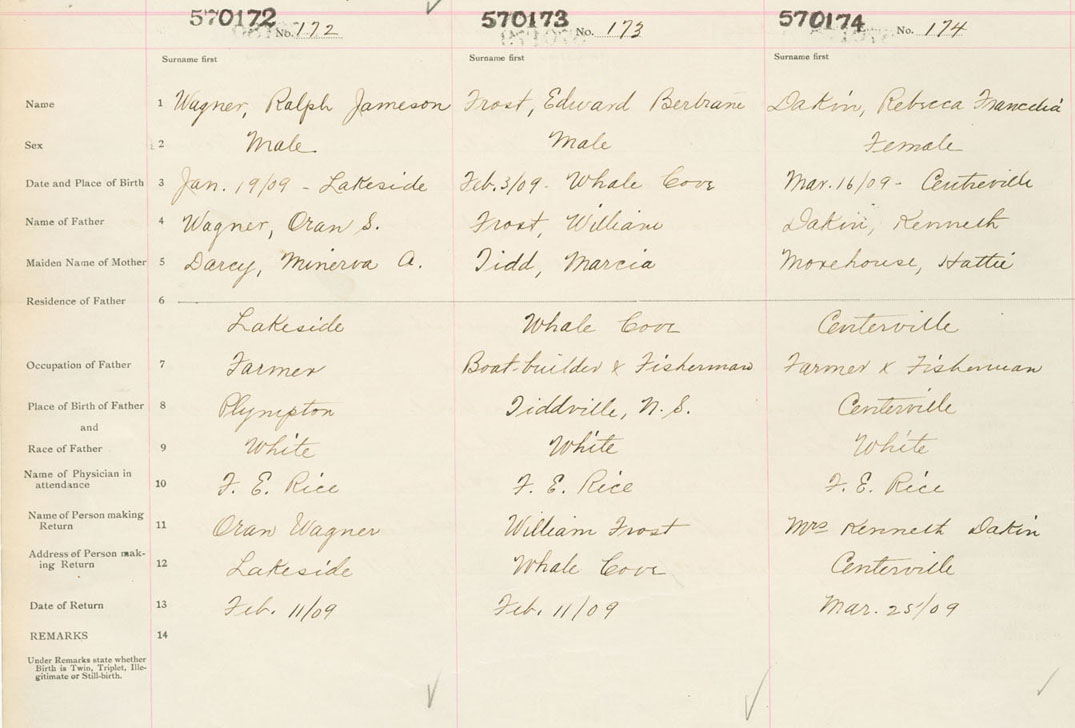 570172 570173 570174
No. 172 No. 173 No. 174
Surname first Surname first Surname first
Name 1 Wagner, Ralph Jameson Frost, Edward Bertrane Dakin, Rebecca Francelia
Sex 2 Male Male Female
Date and Place of Birth 3 Jan. 19/09 - Lakeside Feb. 3/09 - Whale Cove Mar. 16/09 - Centreville
Name of Father 4 Wagner, Oran S. Frost, William Dakin, Kenneth
Maiden Name of Mother 5 Darcy, Minerva A. Tidd, Marcia Morehouse, Hattie
Residence of Father 6
Lakeside Whale Cove Centerville
Occupation of Father 7 Farmer Boat-builder & Fisherman Farmer & Fisherman
Place of Birth of Father 8 Plympton Tiddville, N. S. Centerville
and
Race of Father 9 White White White
Name of Physician in
attendance 10 F. E. Rice F. E. Rice F. E. Rice
Name of Person making
Return 11 Oran Wagner William Frost Mrs Kenneth Dakin
Address of Person mak-
ing Return 12 Lakeside Whale Cove Centerville
Date of Return 13 Feb. 11/09 Feb. 11/09 Mar. 25/09
REMARKS 14
Under Remarks state whether
Birth is Twin, Triplet, Ille-
gitimate or Still-birth.